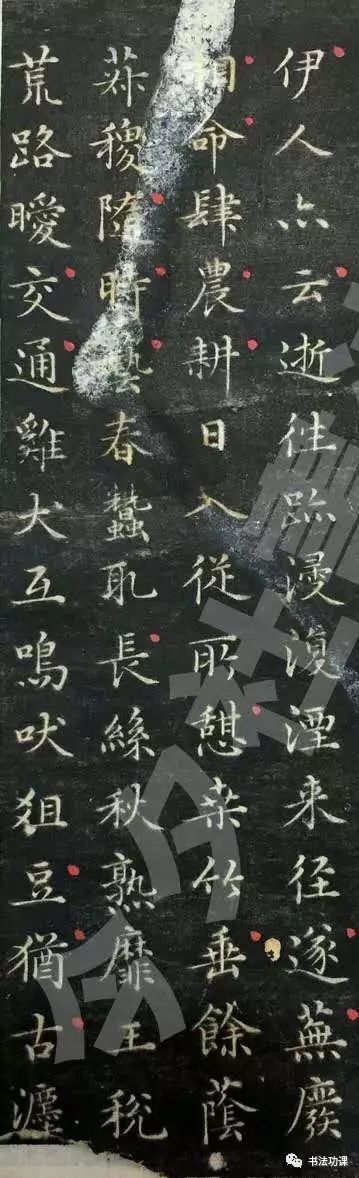 伊人亦云逝往跡浸復湮来径遂蕪廢
相命肆農耕日入從所憩桑竹垂餘蔭
菽稷隨時藝春蠶取長絲秋熟靡王稅
荒路曖交通雞犬互鳴吠俎豆猶古灋
书法功课